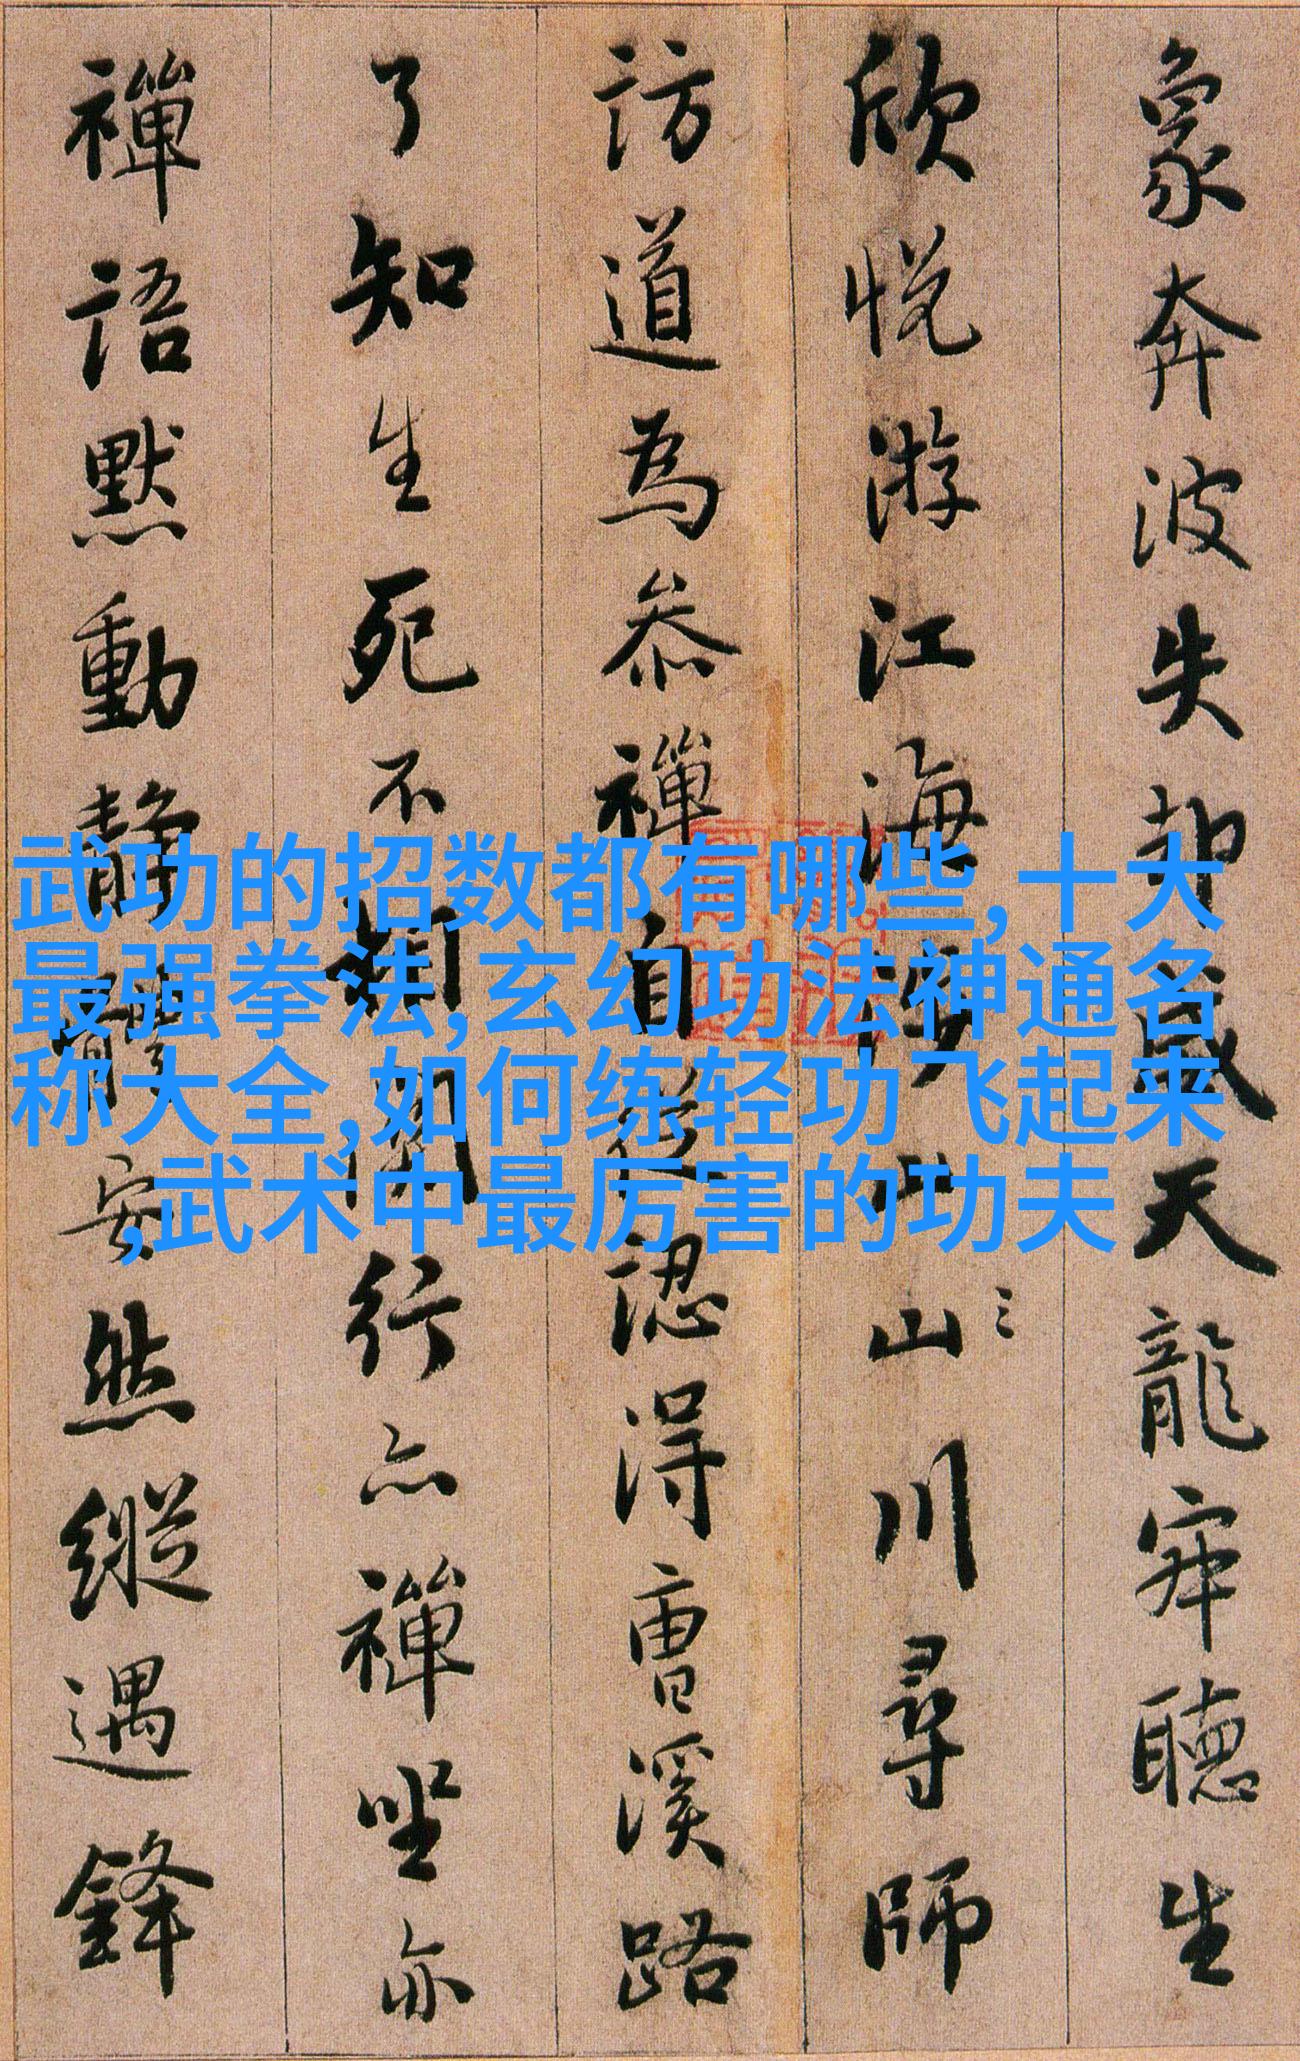 象奔波失却威天龍寂聽生
欣悅游江海山川尋師
訪道為參禪自從認得曹溪路
了知生死不相關行亦禪坐亦
禪語默動靜體安然縱遇鋒
武功的招数都有哪些,十大
最强拳法,玄幻功法神通名
称大全,如何练轻功飞起来
,武术中最厉害的功夫